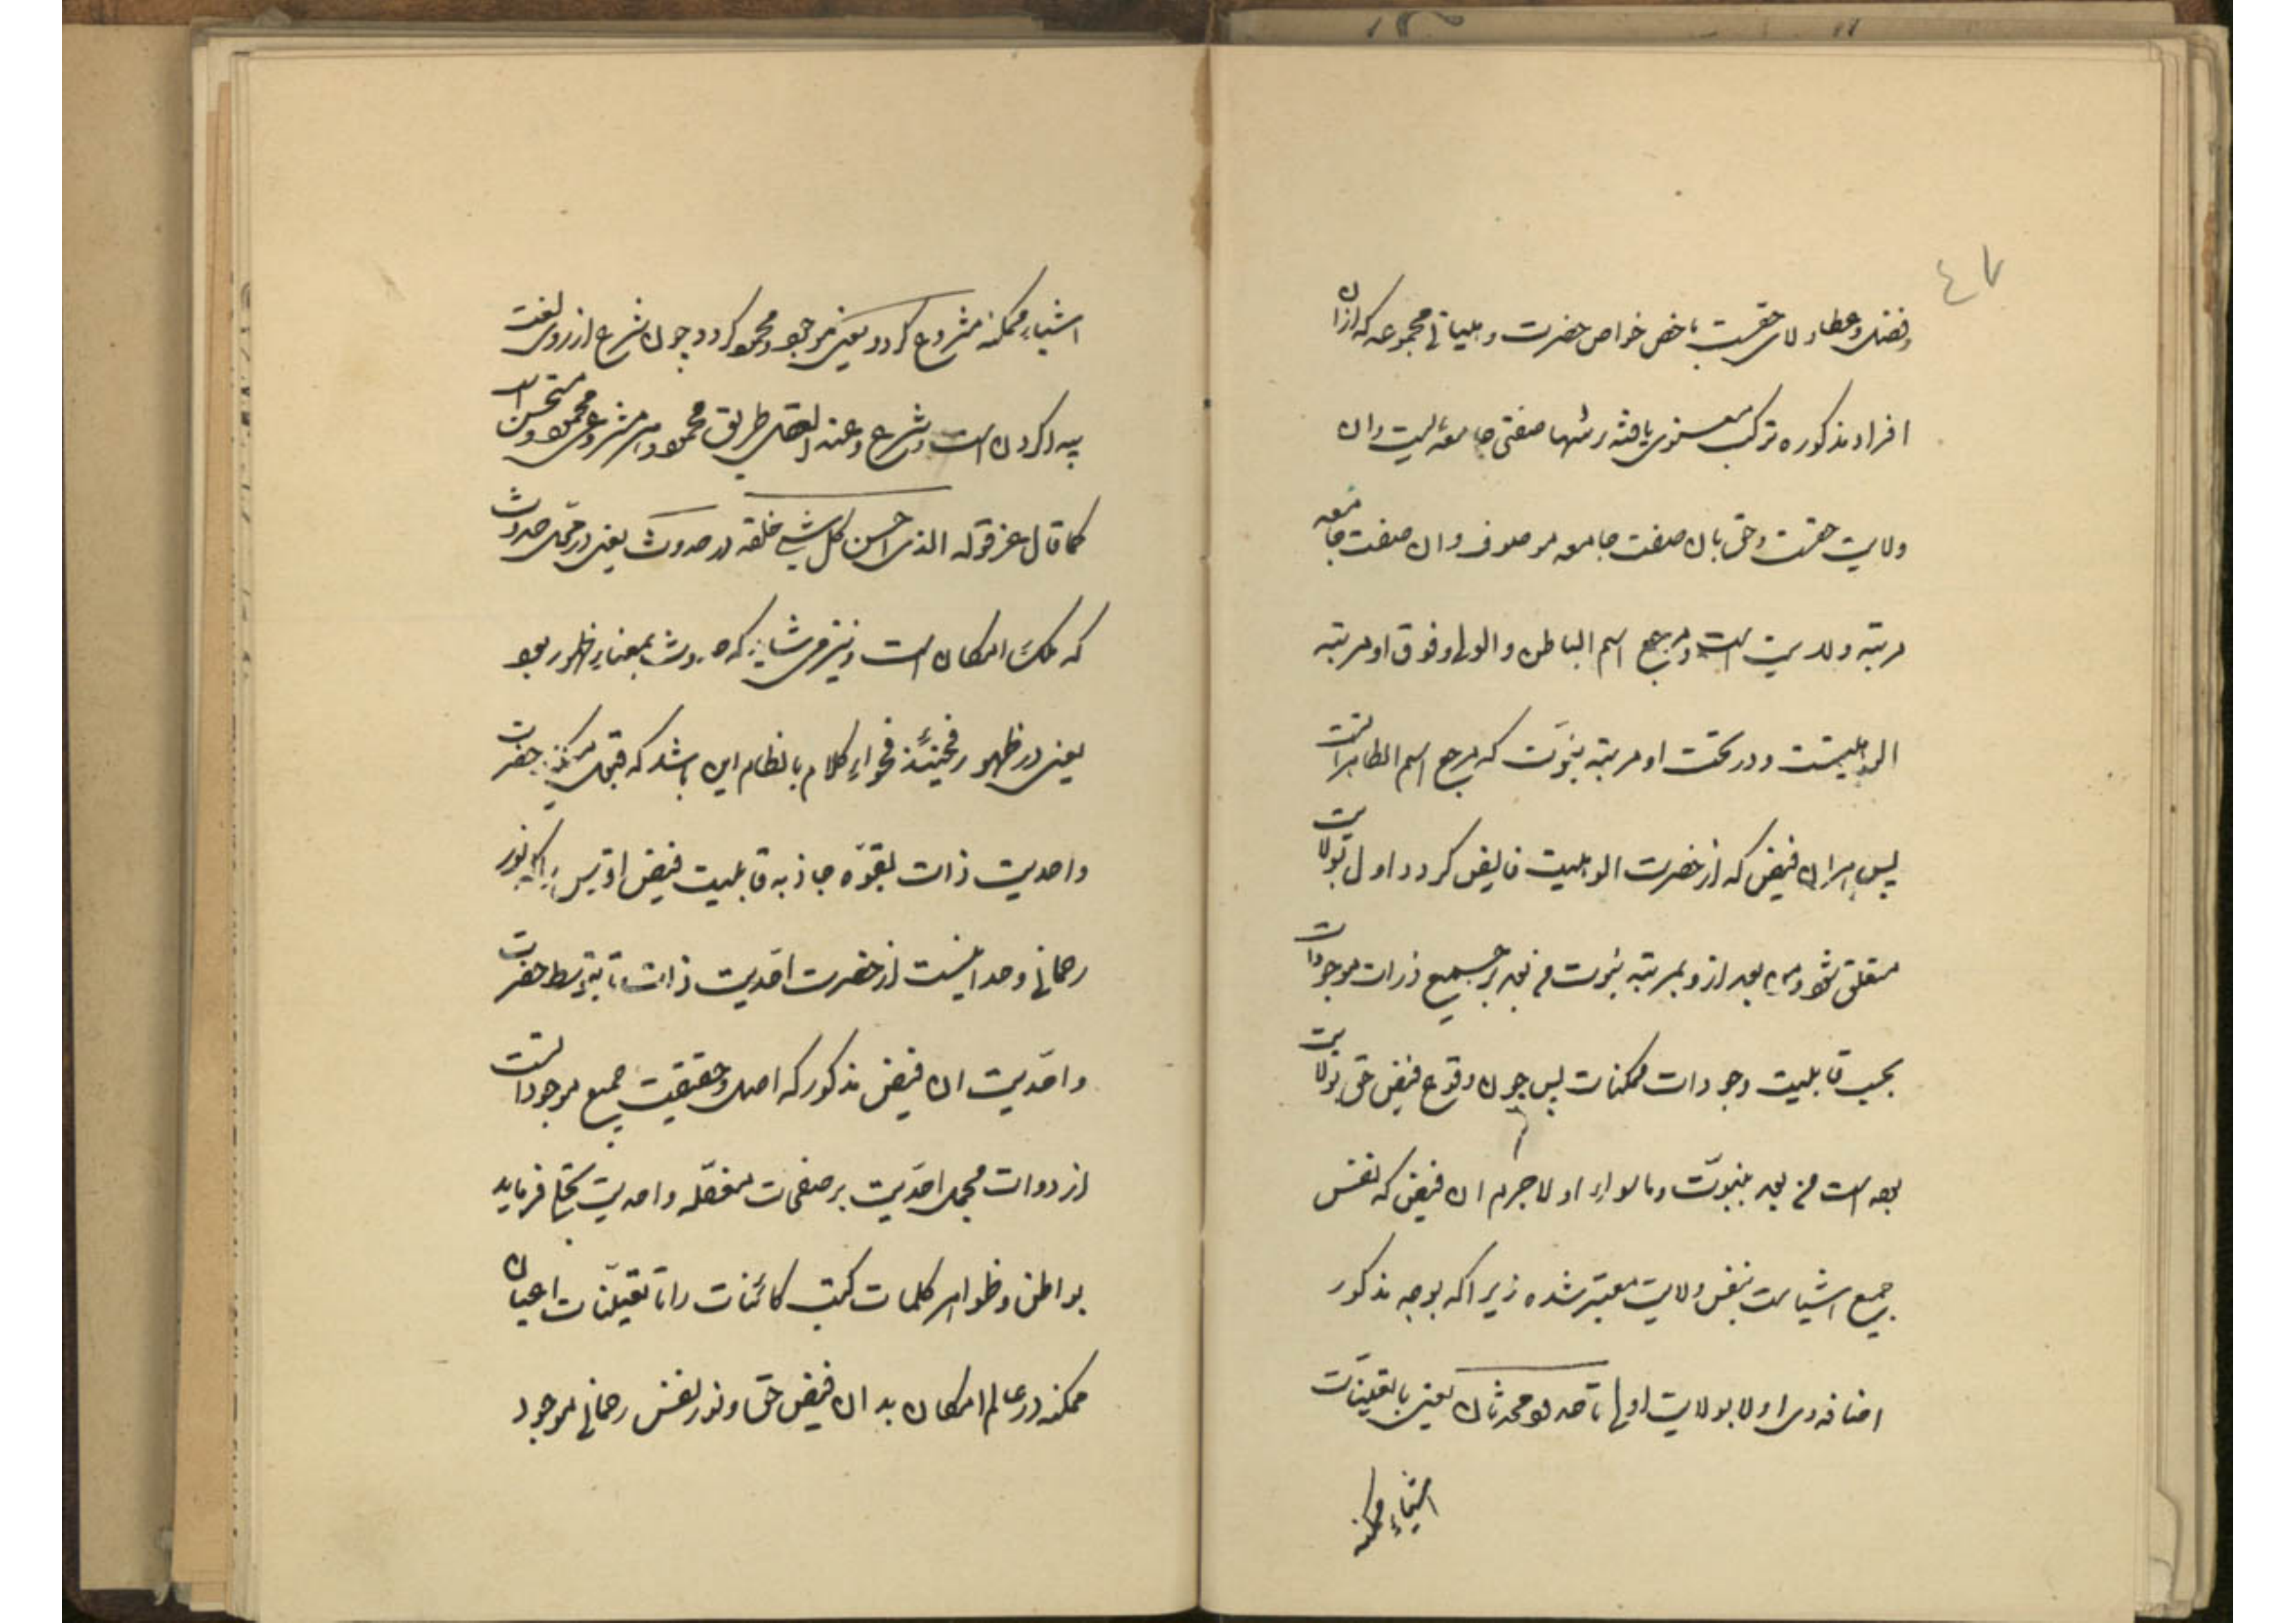 ٤٧
وفضل وعطا ولای حقست باخص خواص حضرت وهیاتی مجموعه که ازان
افراد مذکوره ترکب معنوی یافته رتبها صفتی جامعه ایست وان
ولایت حقست وحق بان صفت جامعه موصوف وان صفت جامعه
مرتبه ولایت است ومرجع اسم الباطن والولی وفوق او مرتبه
الوهیتست ودر تحت او مرتبه نبوّت که مرجع اسم الظاهر است
پس هران فیض که از حضرت الوهیت فایض کردد اول بولایت
متعلق شود بعد ازو بمرتبه نبوت من بعد بر جمیع ذرات موجودات
بحسب قابلیت وجودات ممکنات پس چون وقوع فیض حق بولایت
بوده است من بعد بنبوّت وماسواء او لاجرم ان فیض که نفس
جمیع اشیاست بنفس ولایت معتبر شده زیرا که بوجه مذکور
اضافه وی اولا بولایت اولی تا حدوث محدثان یعنی با تعینات
اشیاء ممکنه
اشیاء ممکنه مشروع کردد یعنی موجود ومحمود کردد چون شرع از روی لغت
پیدا کردن است وشرع وعند العقل طریق محمود وامر مشروعی محمود ومستحسن است
کما قال عز قوله الذی احسن کل شیء خلقه در حدوث یعنی در محل حدوث
که ملک امکان است ونیز می شاید که حدوث بمعنای ظهور بود
یعنی در ظهور فحینئذ فحواء کلام بانظام این باشد که قبل حضرت
واحدیت ذات بقوّه جاذبه قابلیت فیض اقدس را که نور
رحمانی وحدانیست از حضرت احدیت ذات تا بتوسط حضرت
واحدّیت ان فیض مذکور که اصل وحقیقت جمیع موجودات است
از دوات مجمل احدّیت بر صفحات مفصّله واحدیت تجلی فرماید
بواطن وظواهر کلمات کتب کائنات را تا تعیّنات اعیان
ممکنه در عالم امکان بدان فیض حق ونور نفس رحمانی موجود